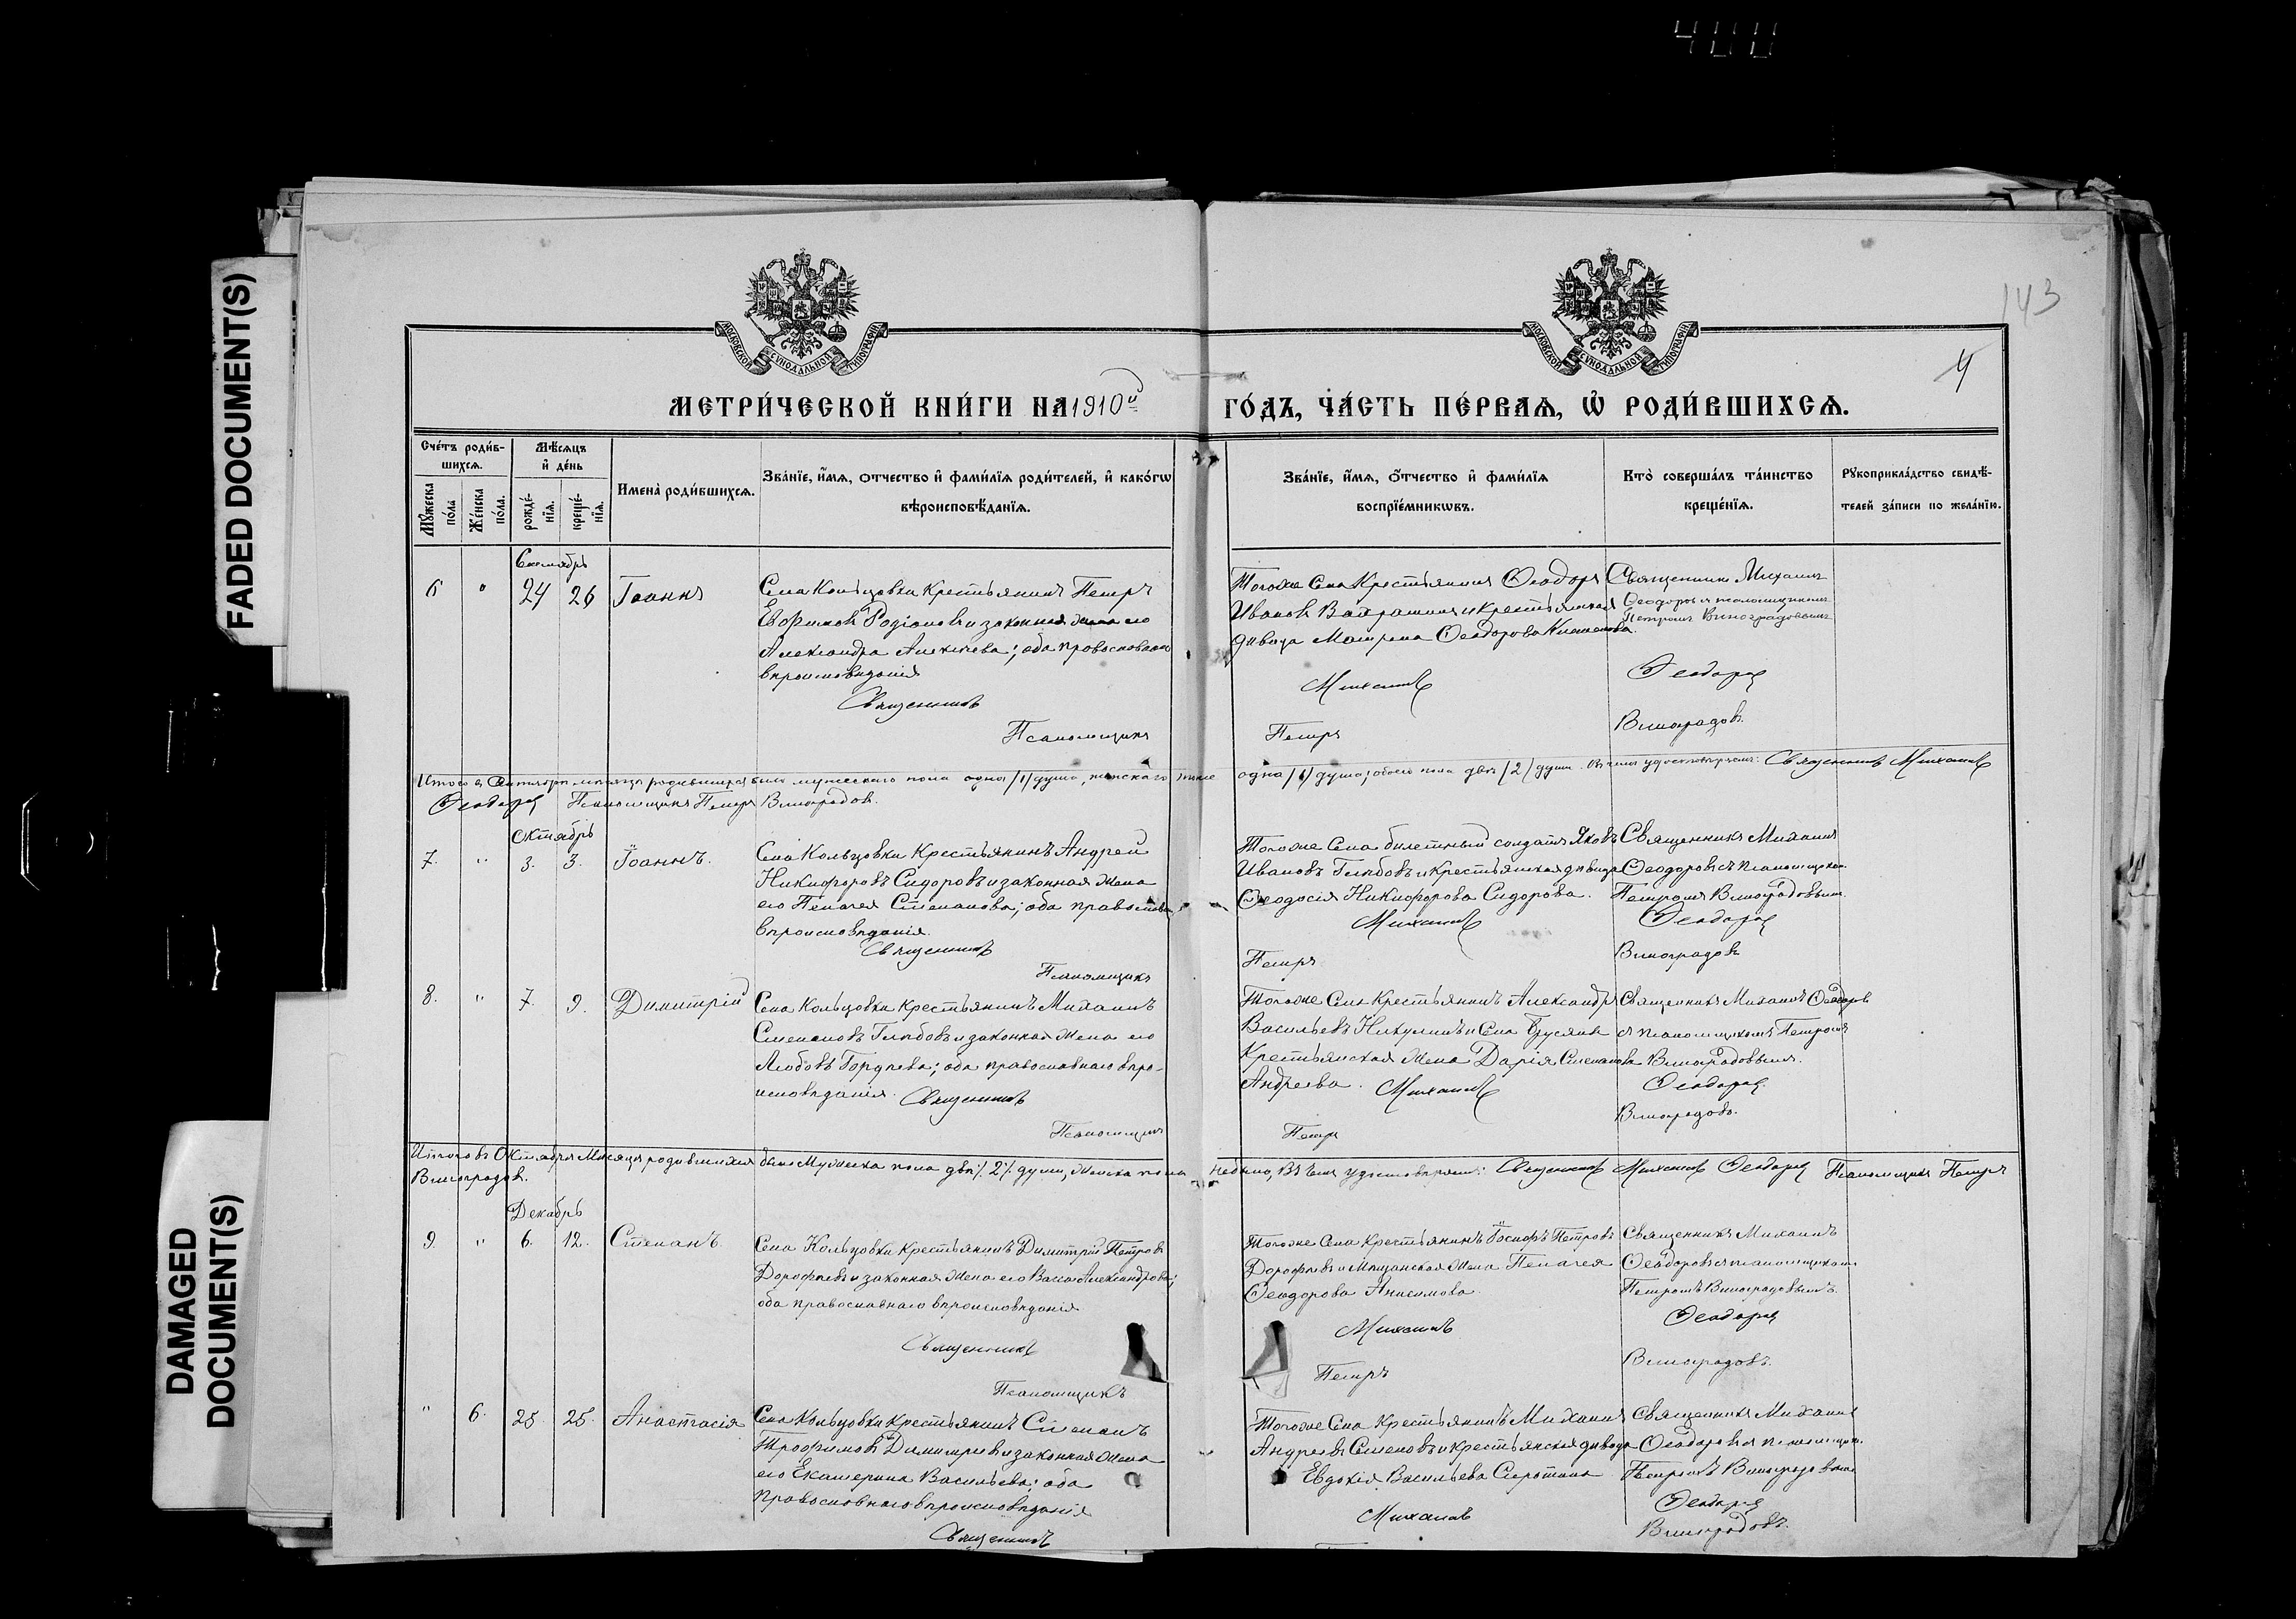 400
FADED DOCUMENT(S)
DAMAGED
DOCUMENT(S)
143
4
МОСКОВСКОЙ СѴНОДАЛЬНОЙ ТИПОГРАФІИ
МОСКОВСКОЙ СѴНОДАЛЬНОЙ ТИПОГРАФІИ
МЕТРИ́ЧЕСКОЙ КНИ́ГИ НА 1910й ГО́ДЪ, ЧА́СТЬ ПЕ́РВАѦ, Ѽ РОДИ́ВШИХСѦ.
Сче́тъ роди́в-
шихсѧ.
Мꙋ́жеска
по́ла
Же́нска
по́ла.
Мѣ́сѧцъ
и҆ де́нь
рожде́-
нїѧ.
креще́-
нїѧ.
Имена̀ роди́вшихсѧ.
Зва́нїе, и҆́мѧ, ѻ҆́тчество и҆ фами́лїѧ роди́телей, и҆ како́гѡ
вѣроисповѣ́данїѧ.
Зва́нїе, и҆́мѧ, ѻ҆́тчество и҆ фами́лїѧ
воспрїе́мникѡвъ.
Кто̀ соверша́лъ та́инство
креще́нїѧ.
Рꙋкоприкла́дство свидѣ́-
телей за́писи по жела́нїю.
Сентябрь
6 " 24 26 Іоаннъ
Села Кольцовки Крестьянинъ Петръ
Ефимовъ Родіоновъ и законная жена его
Александра Алексѣева; оба православнаго
вѣроисповѣданія
Священникъ
Псаломщикъ
Тогоже Села Крестьянинъ Ѳеодоръ
Ивановъ Вахрамовъ и крестьянская
дѣвица Матрена Ѳеодорова
Михаилъ
Петръ
Священникъ Михаилъ
Ѳеодоровъ съ псаломщикомъ
Петромъ Виноградовымъ
Ѳеодоровъ
Виноградовъ.
Итого въ Сентябрѣ мѣсяцѣ родившихся было мужескаго пола одна /1/ душа, женскаго пола одна /1/ душа; обоего пола двѣ /2/ души. Въ чемъ удостовѣряемъ: Священникъ Михаилъ
Ѳеодоровъ Псаломщикъ Петръ Виноградовъ.
Октябрь
7. " 3. 3. Іоаннъ.
Села Кольцовки Крестьянинъ Андрей
Никифоровъ Сидоровъ и законная жена
его Пелагея Степанова; оба православн.
вѣроисповѣданія.
Священникъ
Псаломщикъ
Тогоже Села билетный солдатъ Яковъ
Ивановъ Глѣбовъ и крестьянская дѣвица
Ѳеодосія Никифорова Сидорова.
Михаилъ
Петръ
Священникъ Михаилъ
Ѳеодоровъ съ псаломщиком.
Петромъ Виноградовымъ
Ѳеодоровъ
Виноградовъ
8. " 7. 9. Димитрій
Села Кольцовки Крестьянинъ Михаилъ
Степановъ Глѣбовъ и законная жена его
Любовь Гордѣева; оба православнаго вѣро-
исповѣданія. Священникъ
Псаломщикъ
Тогоже Села Крестьянинъ Александръ
Васильевъ Никулинъ и Села
Крестьянская жена Дарія Степанова
Андреева. Михаилъ
Петръ
Священникъ Михаилъ Ѳеодоровъ
съ псаломщикомъ Петромъ
Виноградовымъ.
Ѳеодоровъ.
Виноградовъ.
Итого въ Октябрѣ Мѣсяцѣ родившихся было Мужеска пола двѣ /2/ души, Женска пола небыло, въ чемъ удостовѣряемъ: Священникъ Михаилъ Ѳеодоровъ Псаломщикъ Петръ
Виноградов.
Декабрь
9. " 6. 12. Степанъ.
Села Кольцовки Крестьянинъ Димитрій Петровъ
Дорофѣевъ и законная жена его Васса Александрова;
оба православнаго вѣроисповѣданія
Священникъ
Псаломщикъ
Тогоже Села Крестьянинъ Іосифъ Петровъ
Дорофѣевъ и Мѣщанская жена Пелагея
Ѳеодорова Анисимова.
Михаилъ
Петръ
Священникъ Михаилъ
Ѳеодоровъ съ псаломщиком.
Петромъ Виноградовымъ.
Ѳеодоровъ
Виноградовъ.
" 6. 25. 25. Анастасія
Села Кольцовки Крестьянинъ Степанъ
Трофимовъ Димитріевъ и законная жена
его Екатерина Васильева; оба
Православнаго вѣроисповѣданія
Священникъ
Тогоже Села Крестьянинъ Михаилъ
Андреевъ Семеновъ и крестьянская дѣвица
Евдокія Васильева Сиротина
Михаилъ
Священникъ Михаилъ
Ѳеодоровъ съ псаломщик.
Петромъ Виноградовымъ
Ѳеодоровъ
Виноградовъ.